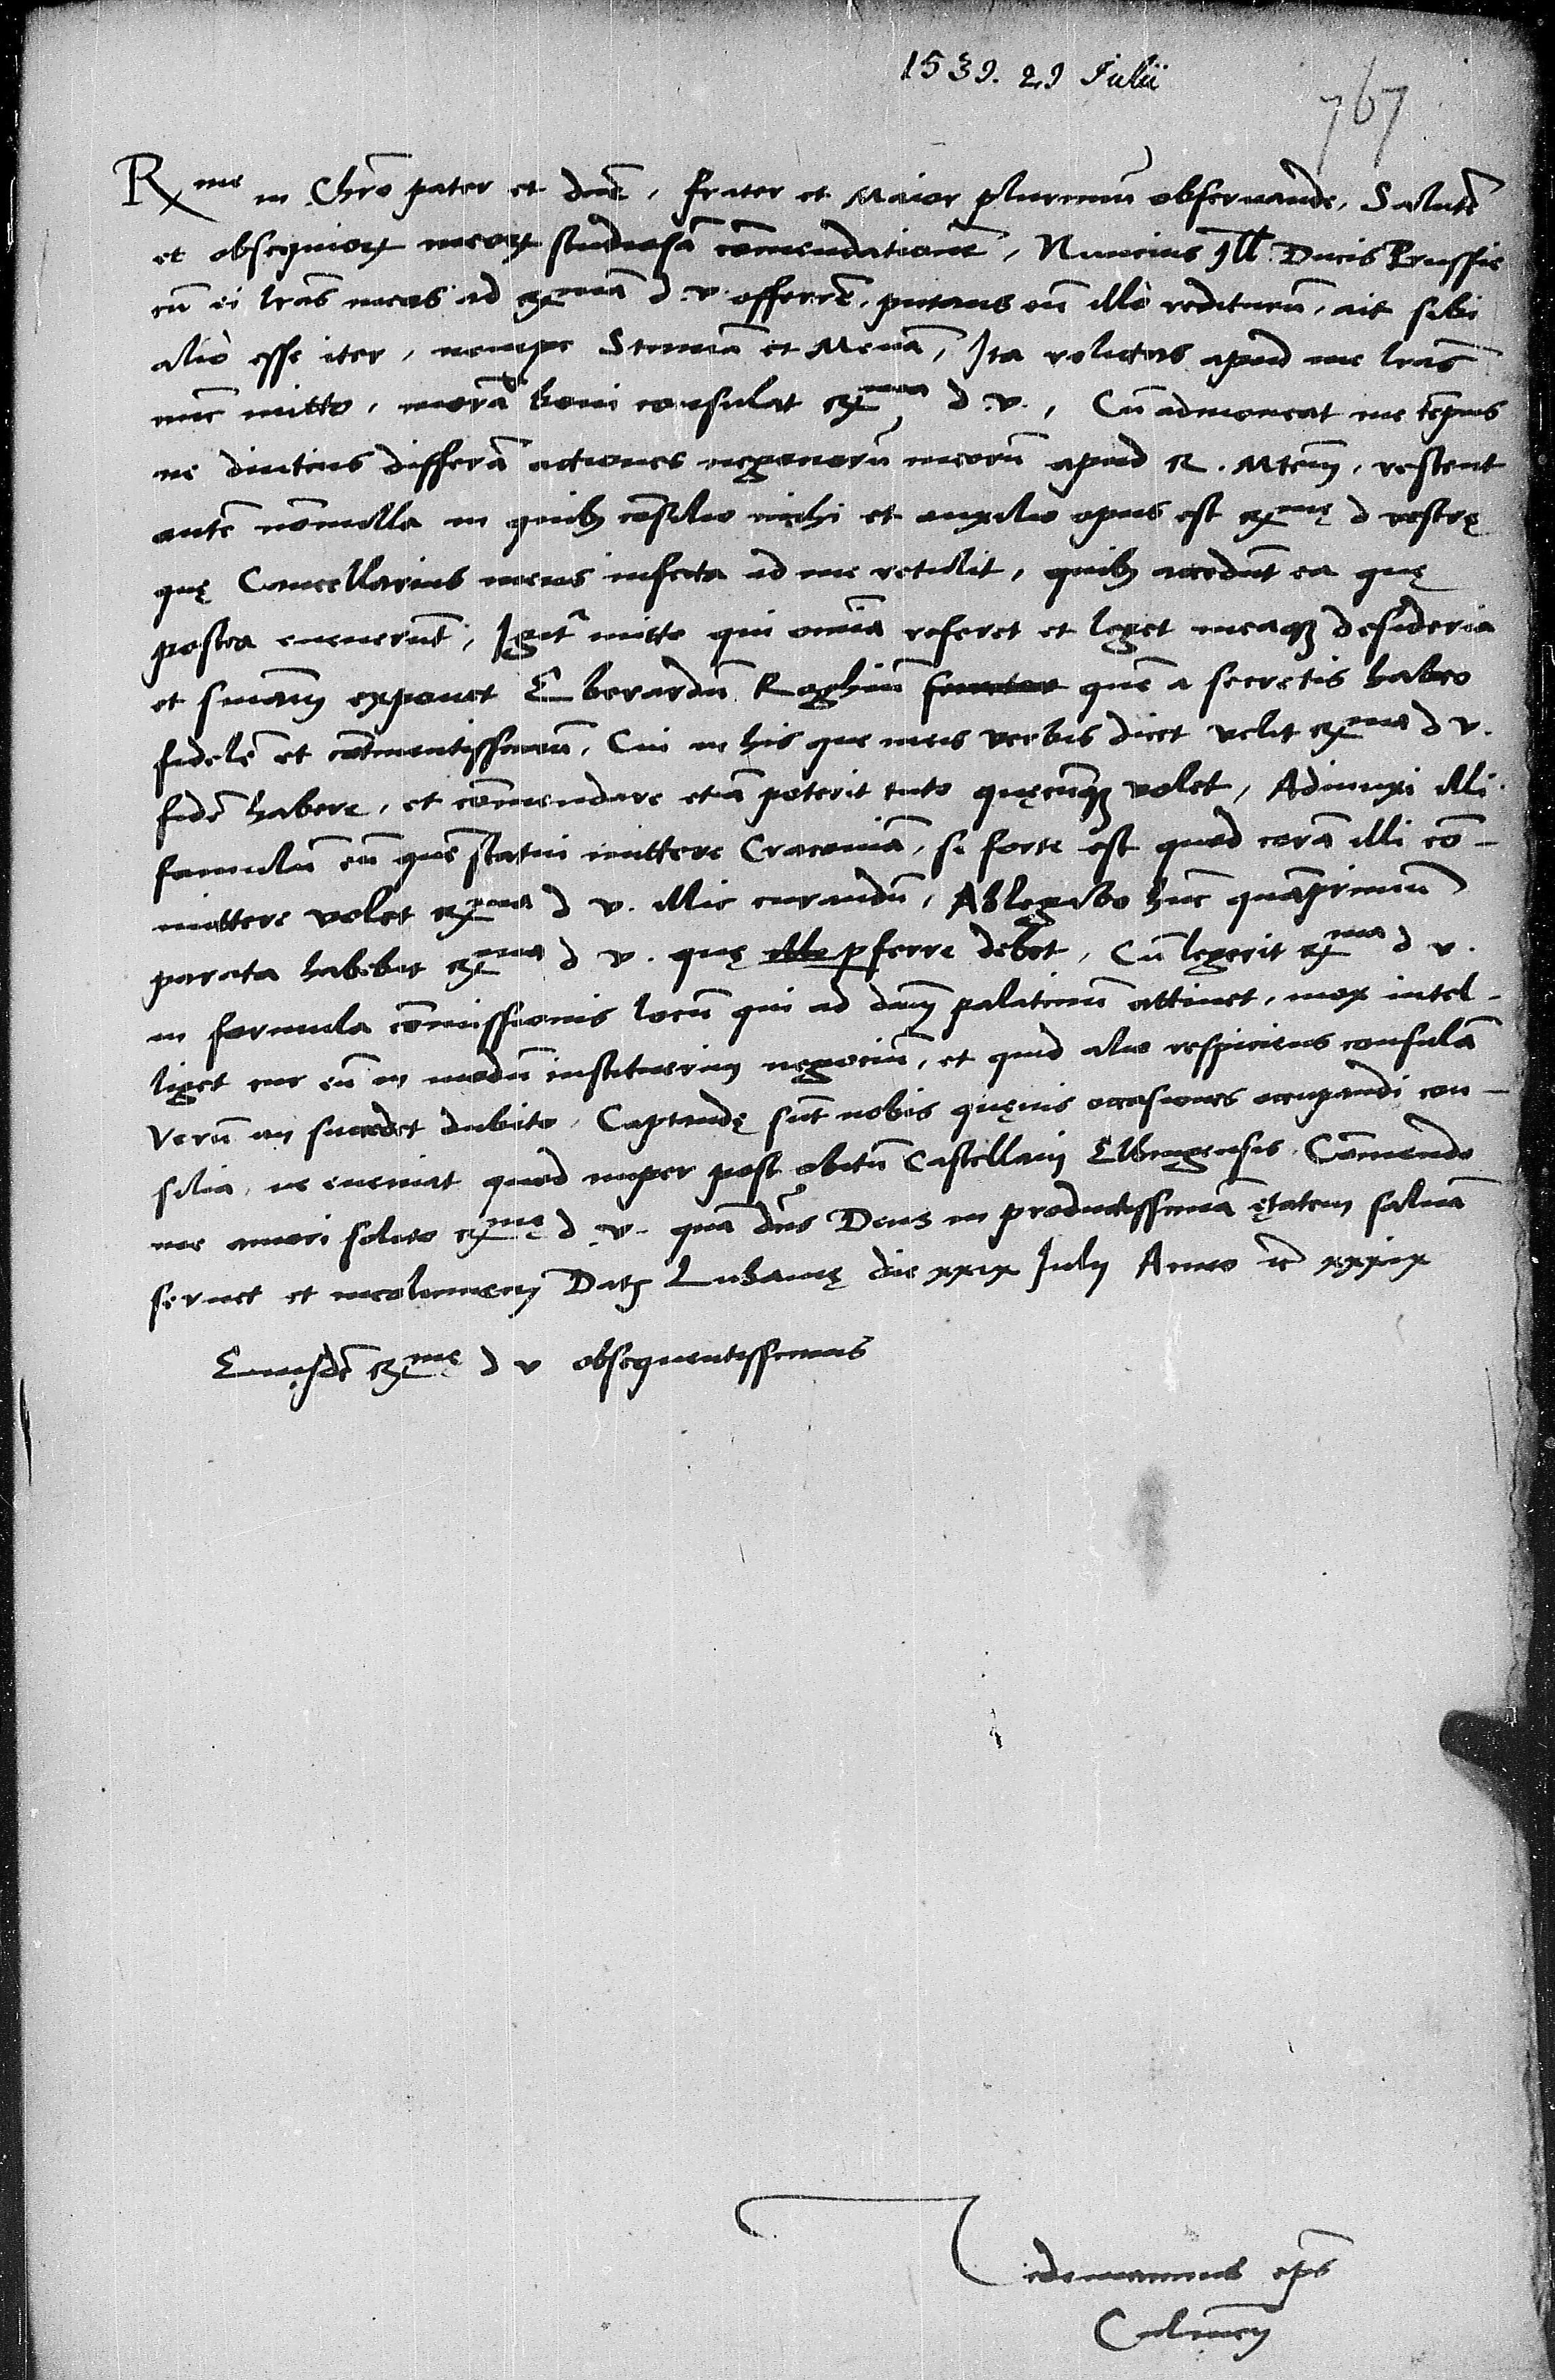 1539. 29 Julii
767
Rme in Chro pater et dne, frater et Maior plurimum obseruande, Salute
et obsequiorum meorum studiosam commendatione, Nuncius Ill. Ducis Prussie
cu ei lras meas ad Rmam d. v. offerre, putans eu illo rediturum, ait sibi
alio esse iter, nempe Stumam et Meuam, Ita relictas apud me lras
nunc mitto, mora boni consulat Rma d. v., Cu admoneat me tempus
ne diutius differa actiones negociorum meorum apud R. Mtem, restent
autem nonnulla in quibus consilio mihi et auxilio opus est Rme d vestrę
quę Cancellarius meus infecta ad me retulit, quibus accedunt ea quę
postea euenerunt, Igitur mitto qui omnia referet et leget meaque desideria
et summam exponet Eberardum Roghium secretar quem a secretis habeo
fidele et continentissimum, Cui in his que meis verbis dicet velit Rma d v.
fide habere, et commendare etiam poterit tuto quęcunque volet, Adiunxi illi
famulum eum quem statui mittere Cracouiam, si forte est quod cora illi co-
mittere volet Rma d v. illic curandum, Ablegabo hinc quamprimum
parata habebit Rma d v. quę illo perferre debet, Cu legerit Rma d v.
in formula commissionis locum qui ad dnm palatinum attinet, mox intel-
liget cur eum in modum instituerim negocium, et quid alio respiciens consulam
Verum an succedet dubito, Captandę sunt nobis quęuis occasiones occupandi con-
silia, ne eueniat quod nuper post obitum Castellani Elbingensis. Commendo
me amori solito Rmę d. v. quam dns Deus in productissimam ętatem saluam
seruet et incolumem Dat Lubauię die xxix Julij Anno xxxix
Eiusdem Rmę d v obsequentissimus
Tidemannus eps
Culmen